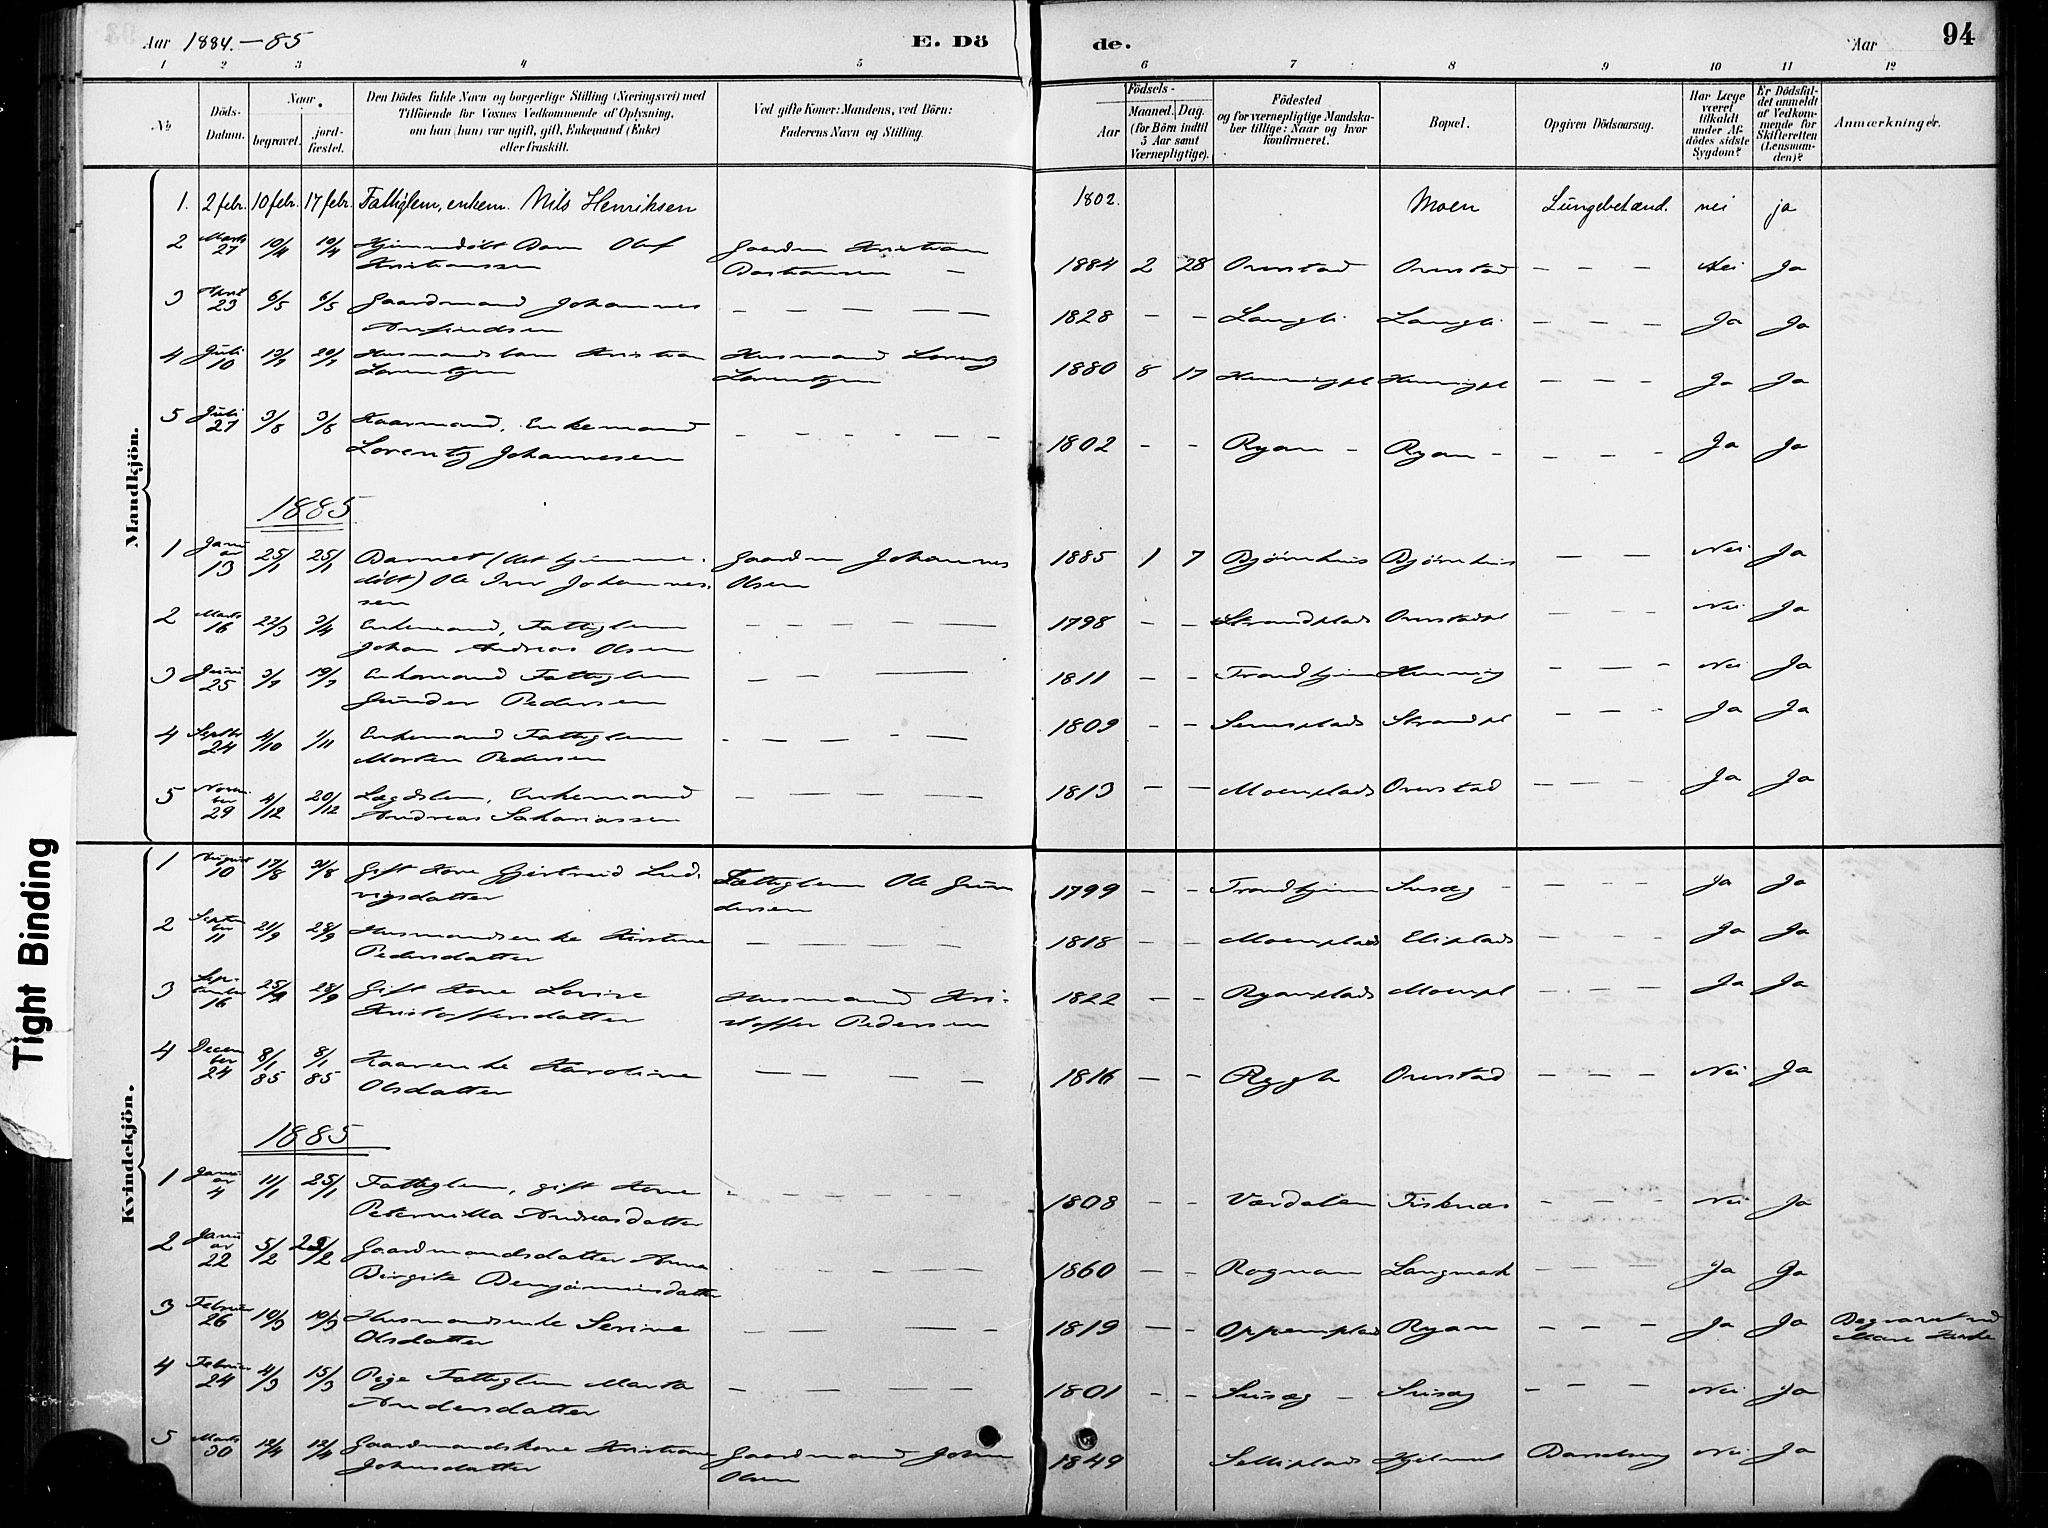 Aar 1884.-85 E. Dö de. Aar 94
1 2 3 4 5 6 7 8 9 10 11 12
No
Döds-Datum.
Naar.
begravet.
jord-fæstet.
Den Dödes fulde Navn og borgerlige Stilling (Næringsvei) med
Tilföiende for Voxnes Vedkommende af Oplysning,
om han (hun) var ugift, gift, Enkemand (Enke)
eller fraskilt.
Ved gifte Koner: Mandens, ved Börn:
Faderens Navn og Stilling.
Födsels-
Aar
Maaned. Dag.
(for Börn indtil
5 Aar samt
Værnepligtige).
Födested
og for værnepligtige Mandska-
ber tillige: Naar og hvor
konfirmeret.
Bopæl.
Opgiven Dödsaarsag.
Har Læge
været
tilkaldt
under Af-
dödes sidste
Sygdom?
Er Dödsfal-
det anmeldt
af Vedkom-
mende for
Skifteretten
(Lensman-
den)?
Anmærkninger.
Mandkjön.
1. 2 febr. 10 febr. 17 febr. Fattiglem, enkem. Nils Henriksen 1802. Moen Lungebetænd. nei ja
2 Marts 27 10/4 10/4 Hjemmedöbt Barn Olaf Gaardm Kristian
Kristianssen Bastiansen — 1884 2 28 Overstad Overstad — — — Nei Ja
3 April 23 6/5 6/5 Gaardmand Johannes
Arnfindsen — — — — — 1828 — — Langli Langli — — — Ja Ja
4 Juli 10 Husmandsbarn Kristian Husmand Lorentz
Lorentzen Lorentzen 1880 8 17 Henningpl Henningpl — — — Ja Ja
5 Juli 27 3/8 3/8 Kaarmand, Enkemand
Lorentz Johannesen — — — — — — 1802 — — Ryan — Ryan — — — — Ja Ja
1885
1 Januar 13 25/1 25/1 Barnet (det hjemme- Gaardm Johannes 1885 1 7 Bjørnhus Bjørnhus — — Nei Ja
döbt) Ole Iver Johannes- Olsen
sen
2 Marts 16 22/3 3/4 Enkemand, Fattiglem — — — — — 1798 — — Strandplads Overstadpl — — — Nei Ja
Johan Andreas Olsen
3 Juni 25 Enkemand Fattiglem — — — — 1811 — — Trondhjem Henning — — — Nei Ja
Gunder Pedersen
4 Septbr 24 4/10 1/11 Enkemand Fattiglem — — — — — 1809 — — Strandpl — — — Ja Ja
Morten Pedersen
5 November 29 4/12 20/12 Lægdslem, Enkemand — — — — — 1813 — — Moenplads Overstad — — — Ja Ja
Andreas Sakariassen
Kvindekjön.
1 August 10 17/8 31/8 Gift Kone Gjertruid Lud- Fattiglem Ole Gun 1799 — — Trondhjem Susæg — — — — Ja Ja
vigsdatter dersen
2 September 11 21/9 28/9 Husmandsenke Kirstine — — — — — 1818 — — Moenplads Eliplads — — — Ja Ja
Pedersdatter
3 September 16 28/9 Gift Kone Lovise Husmand Kri- 1822 — — Ryanplads Moenpl — — — Ja Ja
Kristoffersdatter stoffer Pedersen
4 December 24 8/1 85 8/1 85 Kaarenke Karoline
Olsdatter — — — — — 1816 — — Rygh Overstad — — — Nei Ja
1885
1 Januar 4 11/1 25/1 Fattiglem, gift Kone — — — — — 1808 — — Værdalen Fisknæs — — — Nei Ja
Peternilla Andreasdatter
2 Januar 22 5/2 Gaardmandsdatter Anna
Birgite Benjaminsdatter — — — — 1860 — — Rognan Langmark — — — Ja Ja
3 Februar 26 10/3 10/3 Husmandsenke Serine — — — — 1819 — — Oppemplad Ryan — — — Ja Ja Begravet ved
Olsdatter Mære Kirke
4 Februar 24 4/3 15/3 Pige Fattiglem Marta — — — — — 1801 — — Susæg — Susæg — — — Nei Ja
Andersdatter
5 Marts 30 12/4 12/4 Gaardmandskone Kristiane Gaardmand Johan 1849 Selliplads Barselseng Nei Ja
Johnsdatter Olsen
Tight Binding